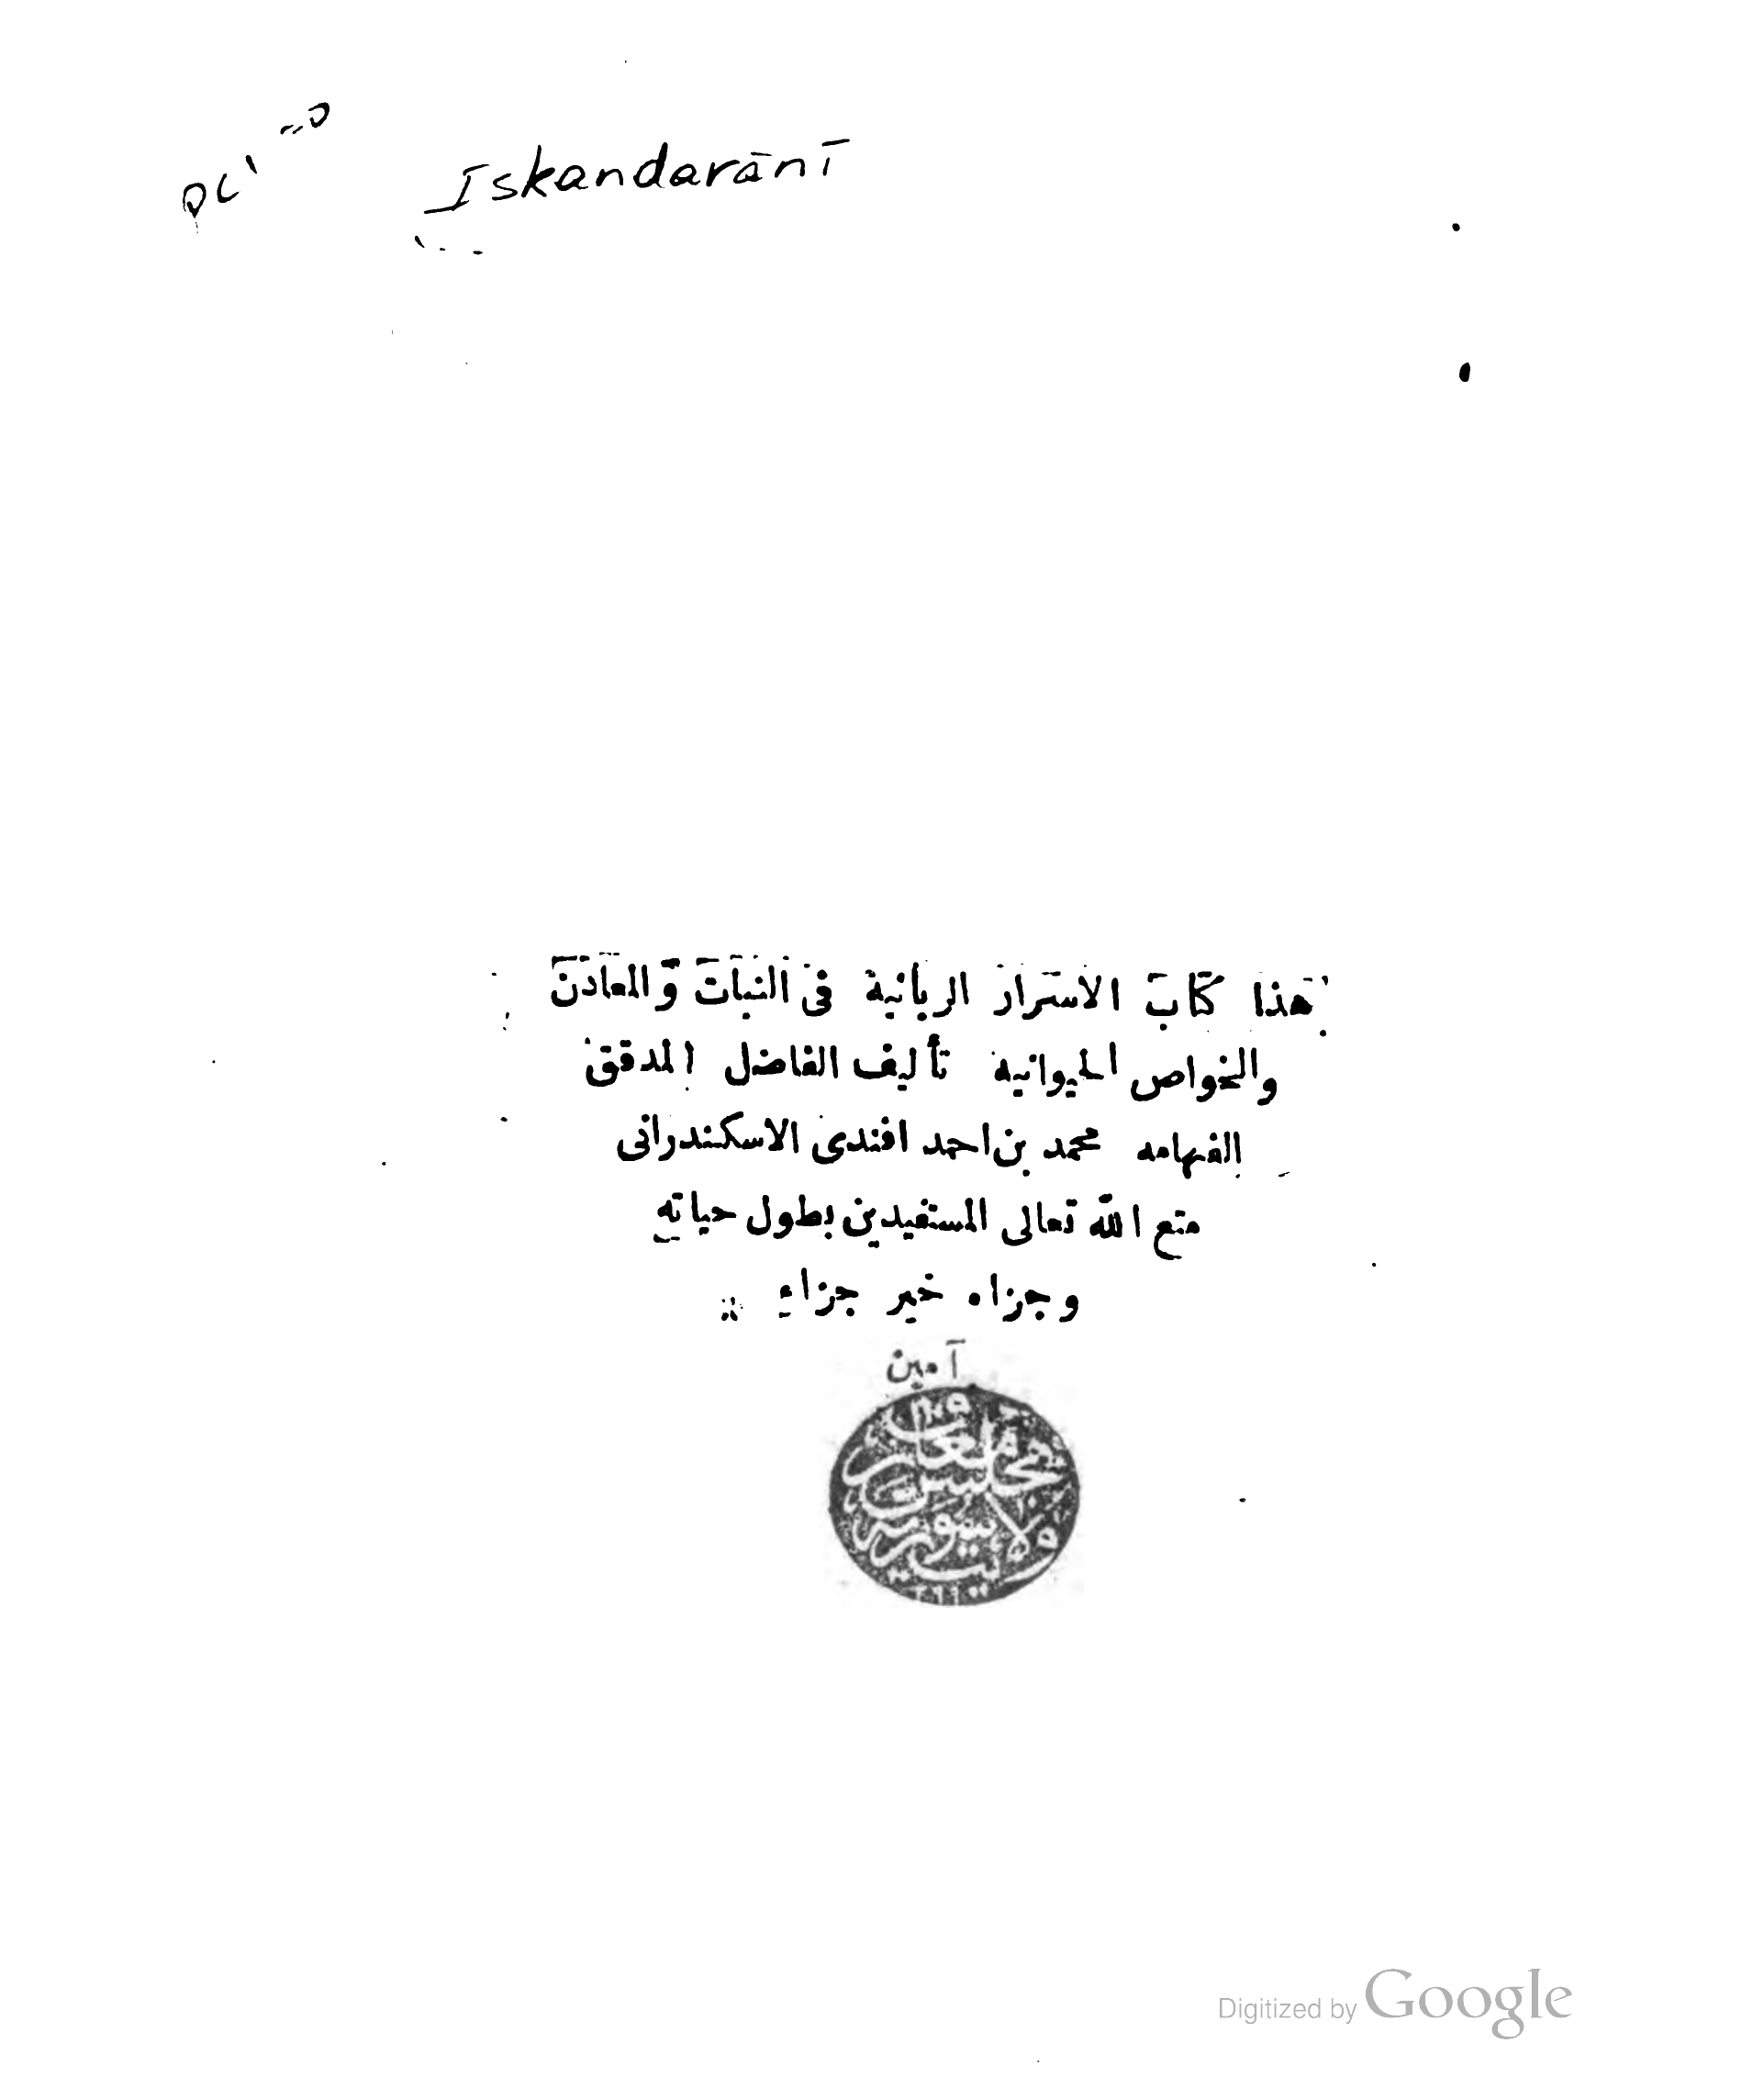 Iskandarānī
هذا كتاب الاسرار الربانية فى النبات والمعادن
والخواص الحيوانية تأليف الفاضل المدقق
الفهامه محمد بن احمد افندى الاسكندرانى
متع الله تعالى المستفيدين بطول حياته
وجزاه خير جزاء
آمين
مجلس معارف
ولايت سوريه
Digitized by Google